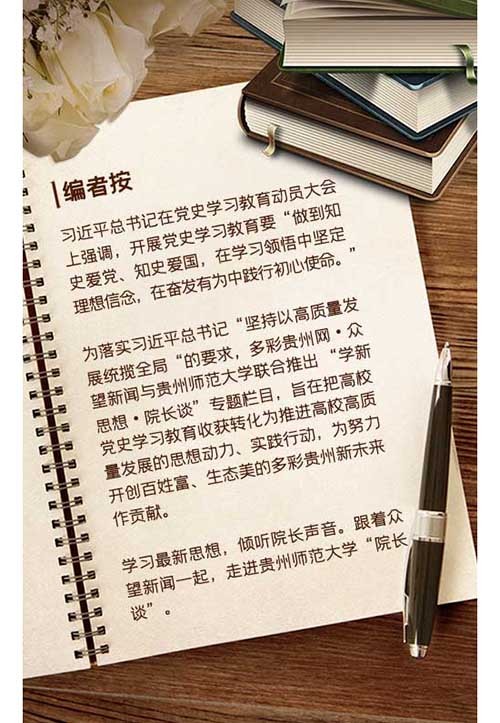 编者按
习近平总书记在党史学习教育动员大会
上强调，开展党史学习教育要“做到知
史爱党、知史爱国，在学习领悟中坚定
理想信念，在奋发有为中践行初心使命。”
为落实习近平总书记“坚持以高质量发
展统揽全局“的要求，多彩贵州网·众
望新闻与贵州师范大学联合推出“学新
思想·院长谈”专题栏目，旨在把高校
党史学习教育收获转化为推进高校高质
量发展的思想动力、实践行动，为努力
开创百姓富、生态美的多彩贵州新未来
作贡献。
学习最新思想，倾听院长声音。跟着众
望新闻一起，走进贵州师范大学“院长
谈”。